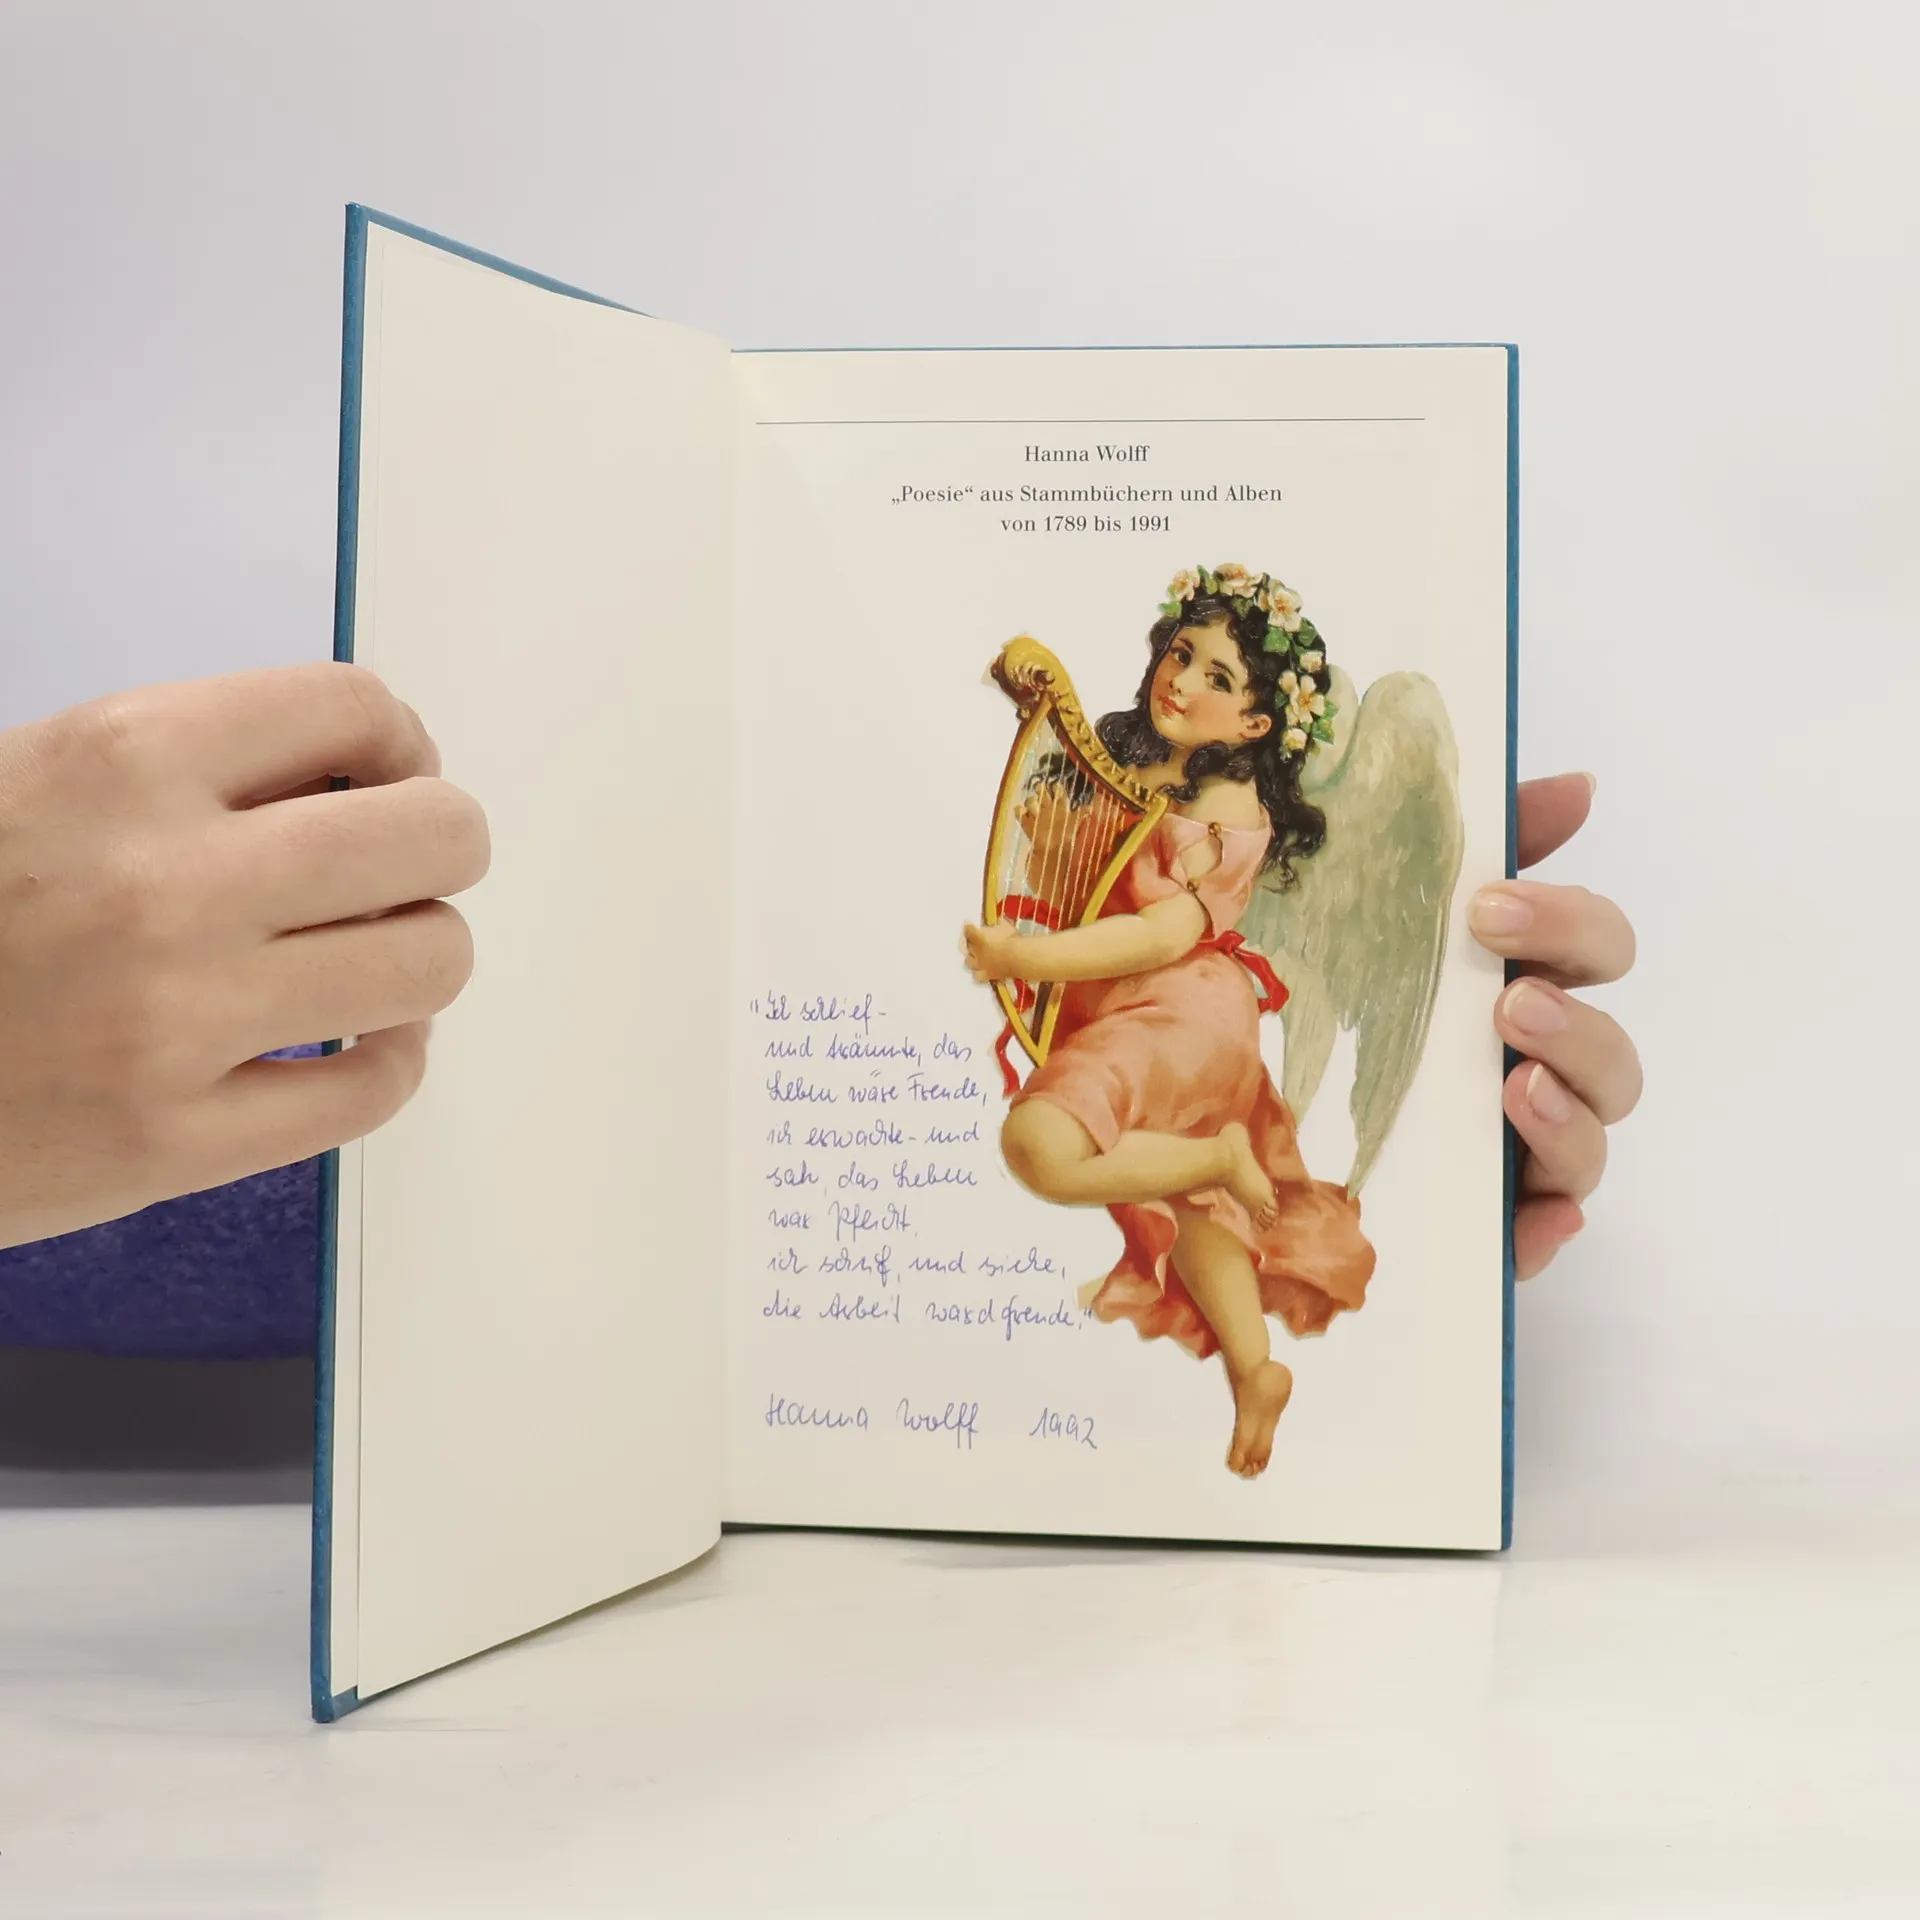 Hanna Wolff
„Poesie“ aus Stammbüchern und Alben
von 1789 bis 1991
"Ich schlief-
und träumte, das
Leben wäre Freude,
ich erwachte- und
sah, das Leben
war Pflicht,
ich schrif, und siehe,
die Arbeit ward Freude."
Hanna Wolff 1992